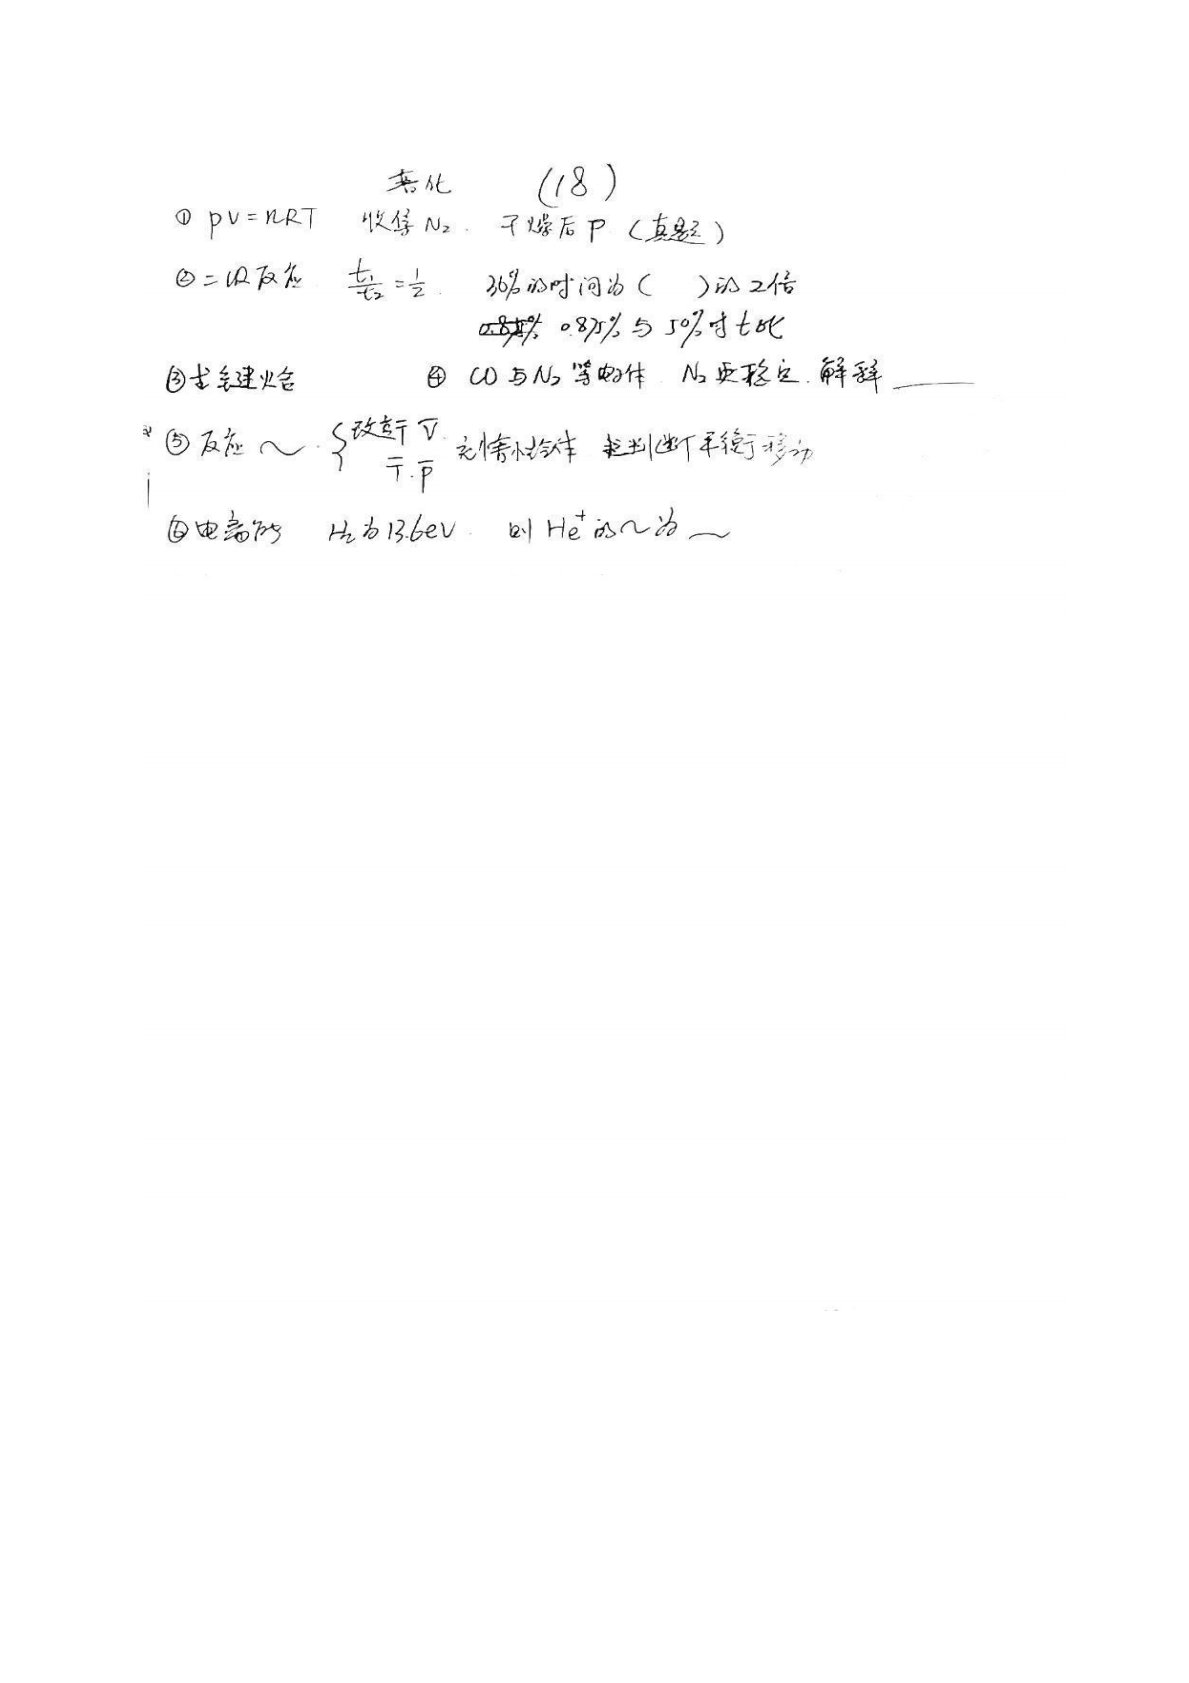 普化 (18)
① pV=nRT 收集N₂. 干燥后P (真题)
②二级反应 t₁/t₂=1/2. 30%的时间为( )的2倍
0.875% 与 50%时t比
③求键焓 ④ CO与N₂等电子体 N₂更稳定.解释______
⑤反应~. {改变 T V 充惰性气体 判断平衡移动
T.P
⑥电离能 H₂为13.6eV. 则He⁺的~为~